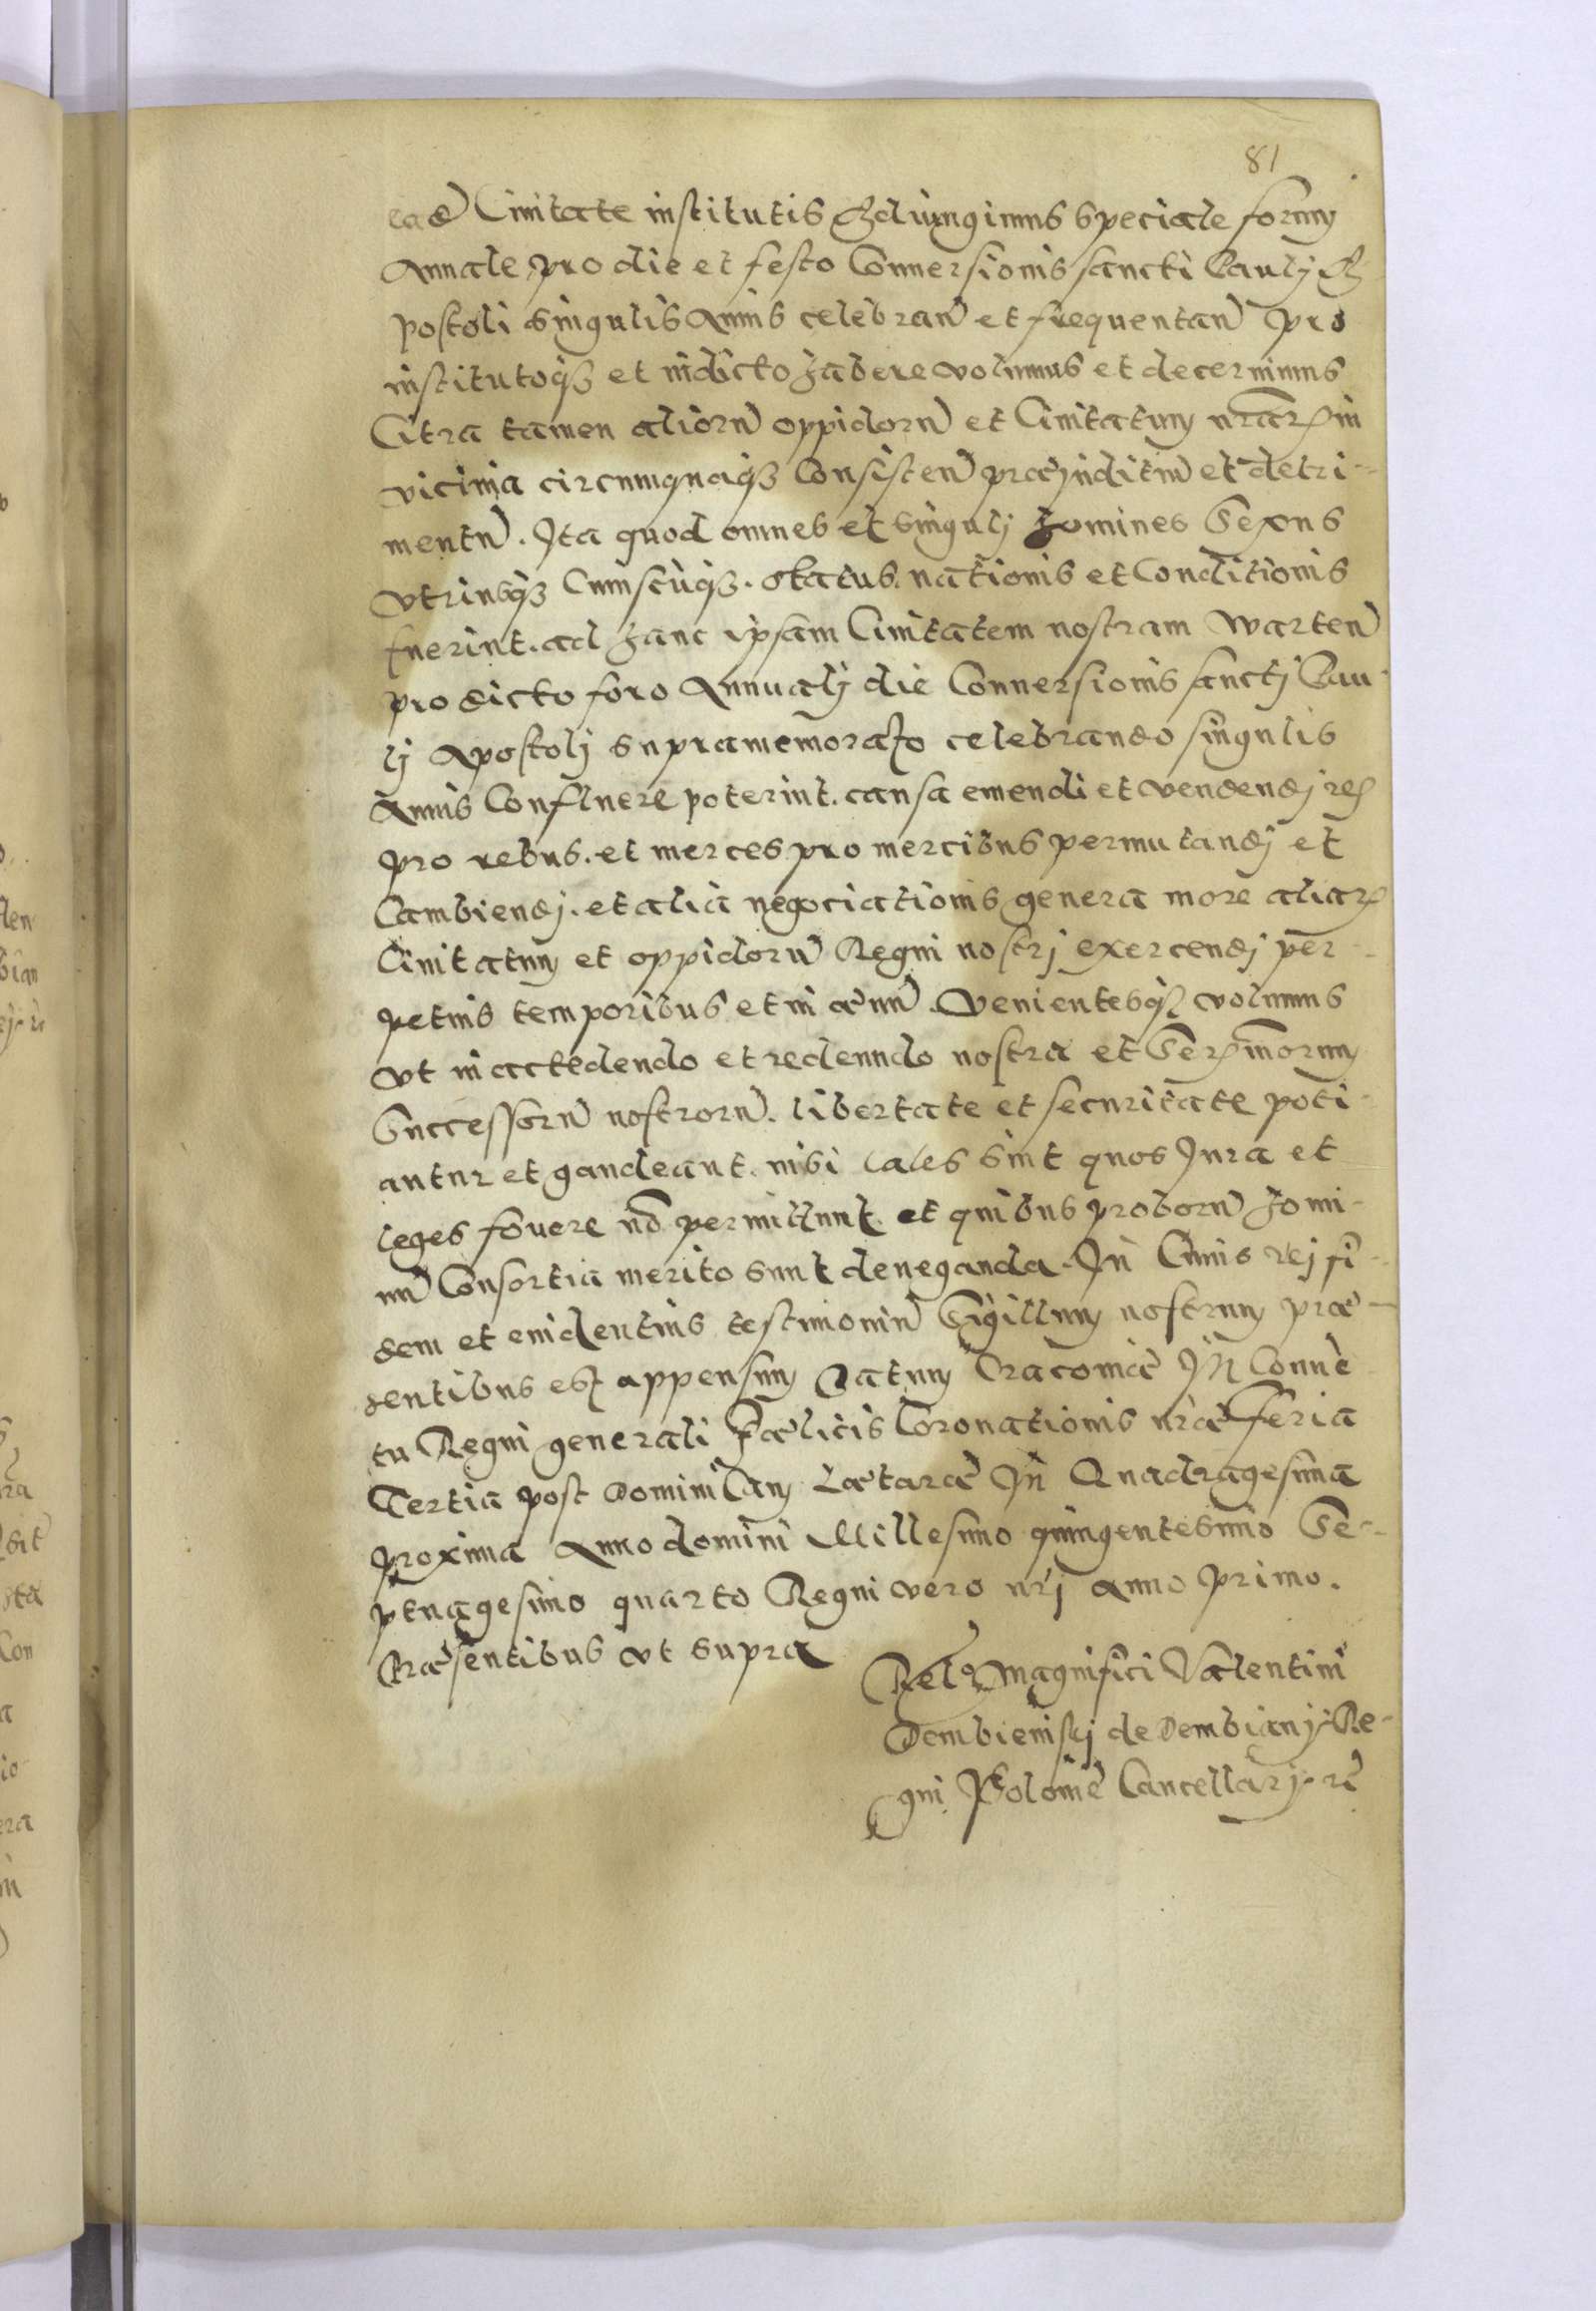 81
eadē Ciuitate institutis Adiungimus speciale forum
Annale pro die et festo Conuersionis sancti Pauli A-
postoli singulis Annis celebran̄ et frequentan̄ pro
institutoq3 et indicto habere volumus et decernimus
Citra tamen aliorū oppidorū et Ciuitatum nrarꝝ in
vicinia circumquaq3 Consisten̄ præiuditiū et detri-
mentū. Ita quod omnes et singulj homines Sexus
vtriusq3 Cuiuscūq3. status. nationis et Conditionis
fuerint. ad hanc ipsam Ciuitatem nostram Warten̄
pro dicto foro Annualj die Conuersionis sanctj Pau-
lj Apostolj supramemorato celebrando singulis
Annis Confluere poterint. causa emendi et vendendj res
pro rebus. et merces pro mercibus permutandj et
Cambiendj. et alia negociationis genera more aliarꝝ
Ciuitatum et oppidorū Regni nostrj exercendj per-
petuis temporibus et in æuū. Venientesq3 volumus
vt in accedendo et redeundo nostra et Serꝫmorum
Successorū nostrorū. libertate et securitate poti-
antur et gaudeant. nisi tales sint quos Jura et
leges fouere nō permittunt. et quibus proborū homi-
nū Consortia merito sunt deneganda. In Cuius rej fi-
dem et euidentius testimoniū Sigillum nostrum præ-
sentibus est appensum Datum Cracouiæ In Conuē
tu Regni generali Fælicis Coronationis nræ Feria
Tertia post Dominicam Lætaræ In Quadragesima
proxima Anno domini Millesimo quingentesimo Se-
ptuagesimo quarto Regni vero nrj anno primo.
Præsentibus vt supra
Relo Magnifici Valentini
Dembieniskj de Dembianj. Re-
gni Poloniē Cancellarj. rē